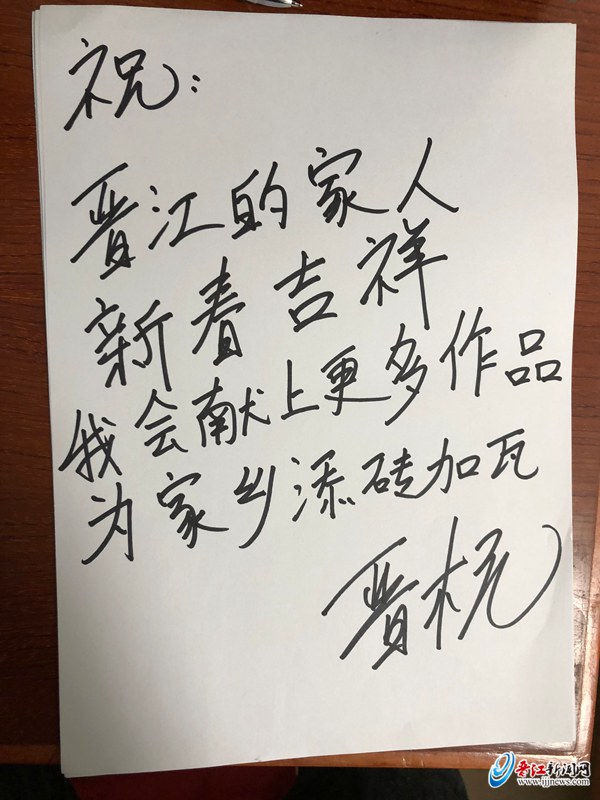 祝：
晋江的家人
新春吉祥
我会献上更多作品
为家乡添砖加瓦
晋杭
晋江新闻网
www.ijjnews.com